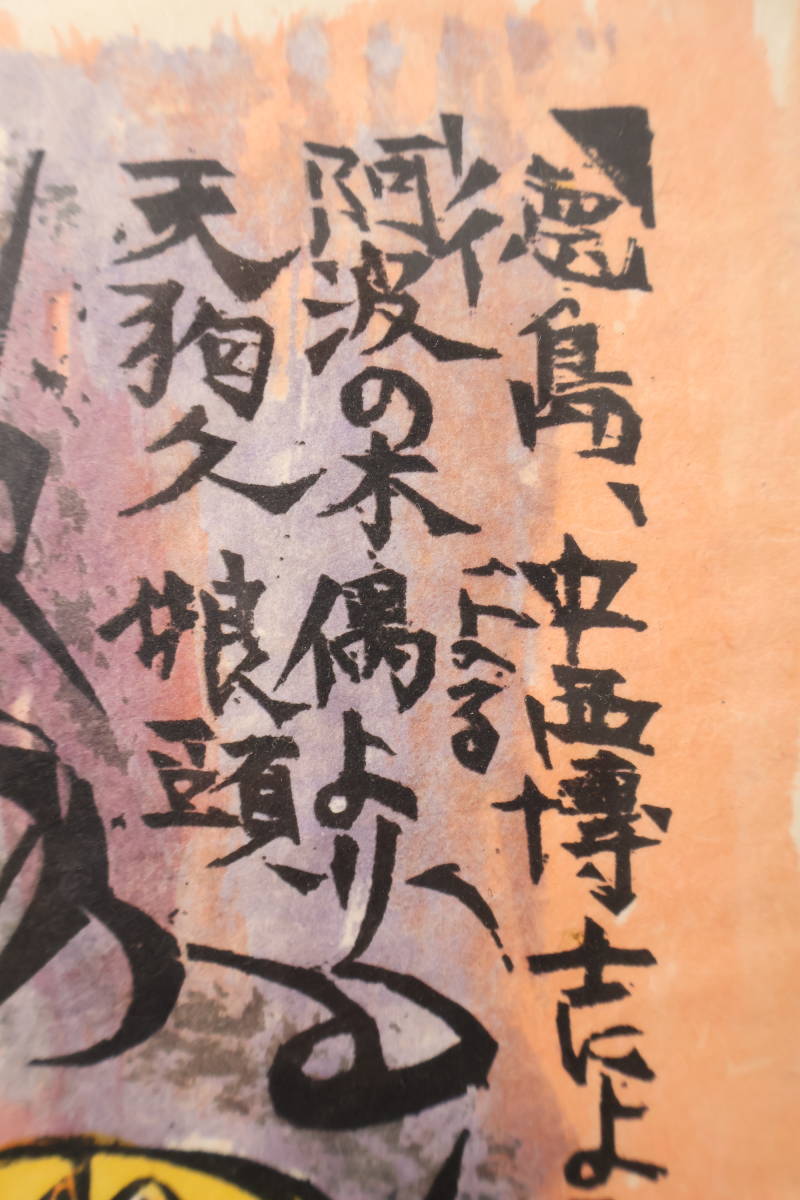 徳島、中西博士によ
阿波の木偶より
天狗久 娘頭